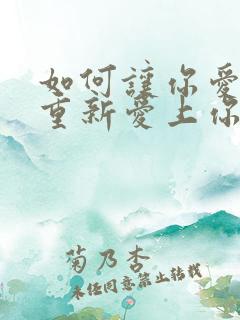 如何讓你愛
重新愛上你
菊乃杏
未經同意禁止轉載